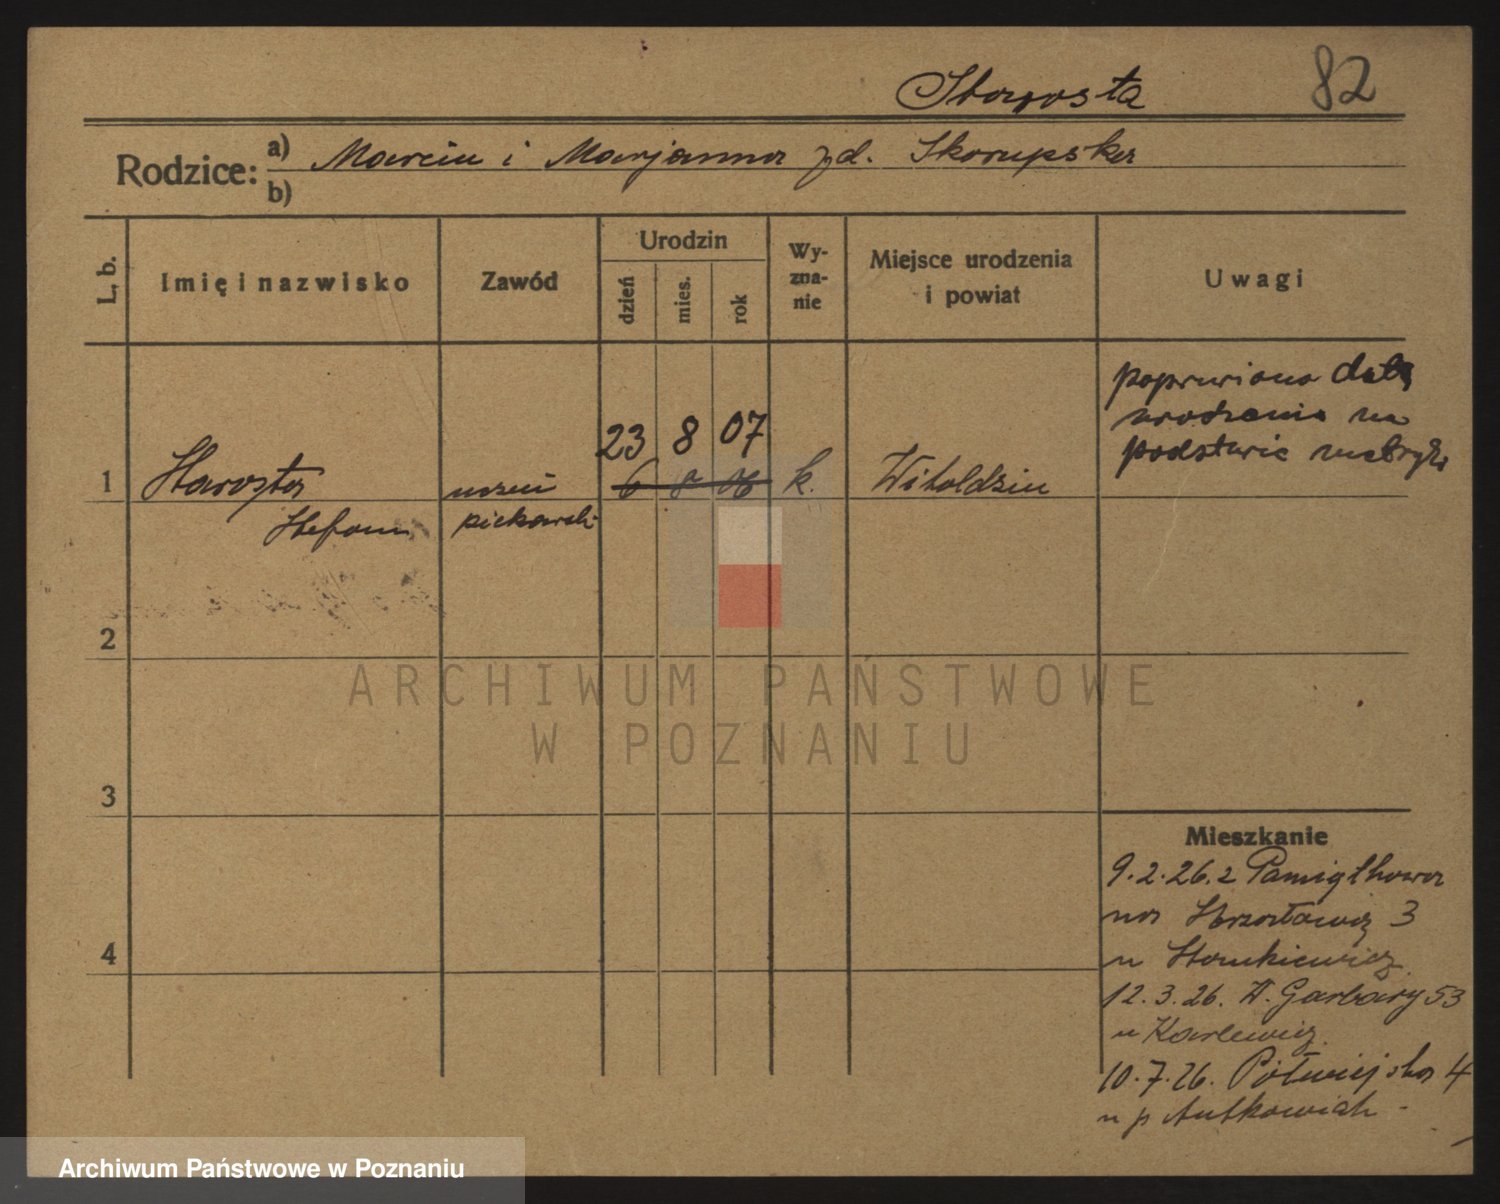 Starosta 82
Rodzice: a) Marcin i Marjanna zd. Skorupska
b)
L. b. Imię i nazwisko Zawód Urodzin dzień mies. rok Wyznanie Miejsce urodzenia i powiat Uwagi
poprawiono datę
urodzenia na
podstawie metryki
23 8 07
1 Starosta uczeń 6 8 06 k. Witoldzin
Stefan piekarski
2
3
4
Mieszkanie
9.2.26. z Pamiątkowa
na Strzałowa 3
u Stankiewicz
12.3.26. W. Garbary 53
u Karlewicz
10.7.26. Półwiejska 4
u p. Antkowiak
ARCHIWUM PAŃSTWOWE
W POZNANIU
Archiwum Państwowe w Poznaniu